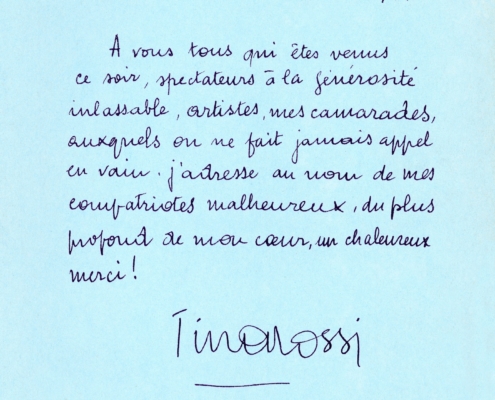 A vous tous qui êtes venus
ce soir, spectateurs à la générosité
inlassable, artistes, mes camarades,
auxquels on ne fait jamais appel
en vain. j'adresse au nom de mes
compatriotes malheureux, du plus
profond de mon cœur, un chaleureux
merci!
Tino Rossi